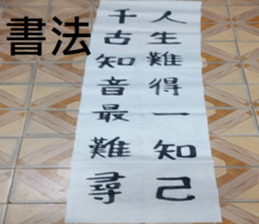 書法
人生難得一知己
千古知音最難尋